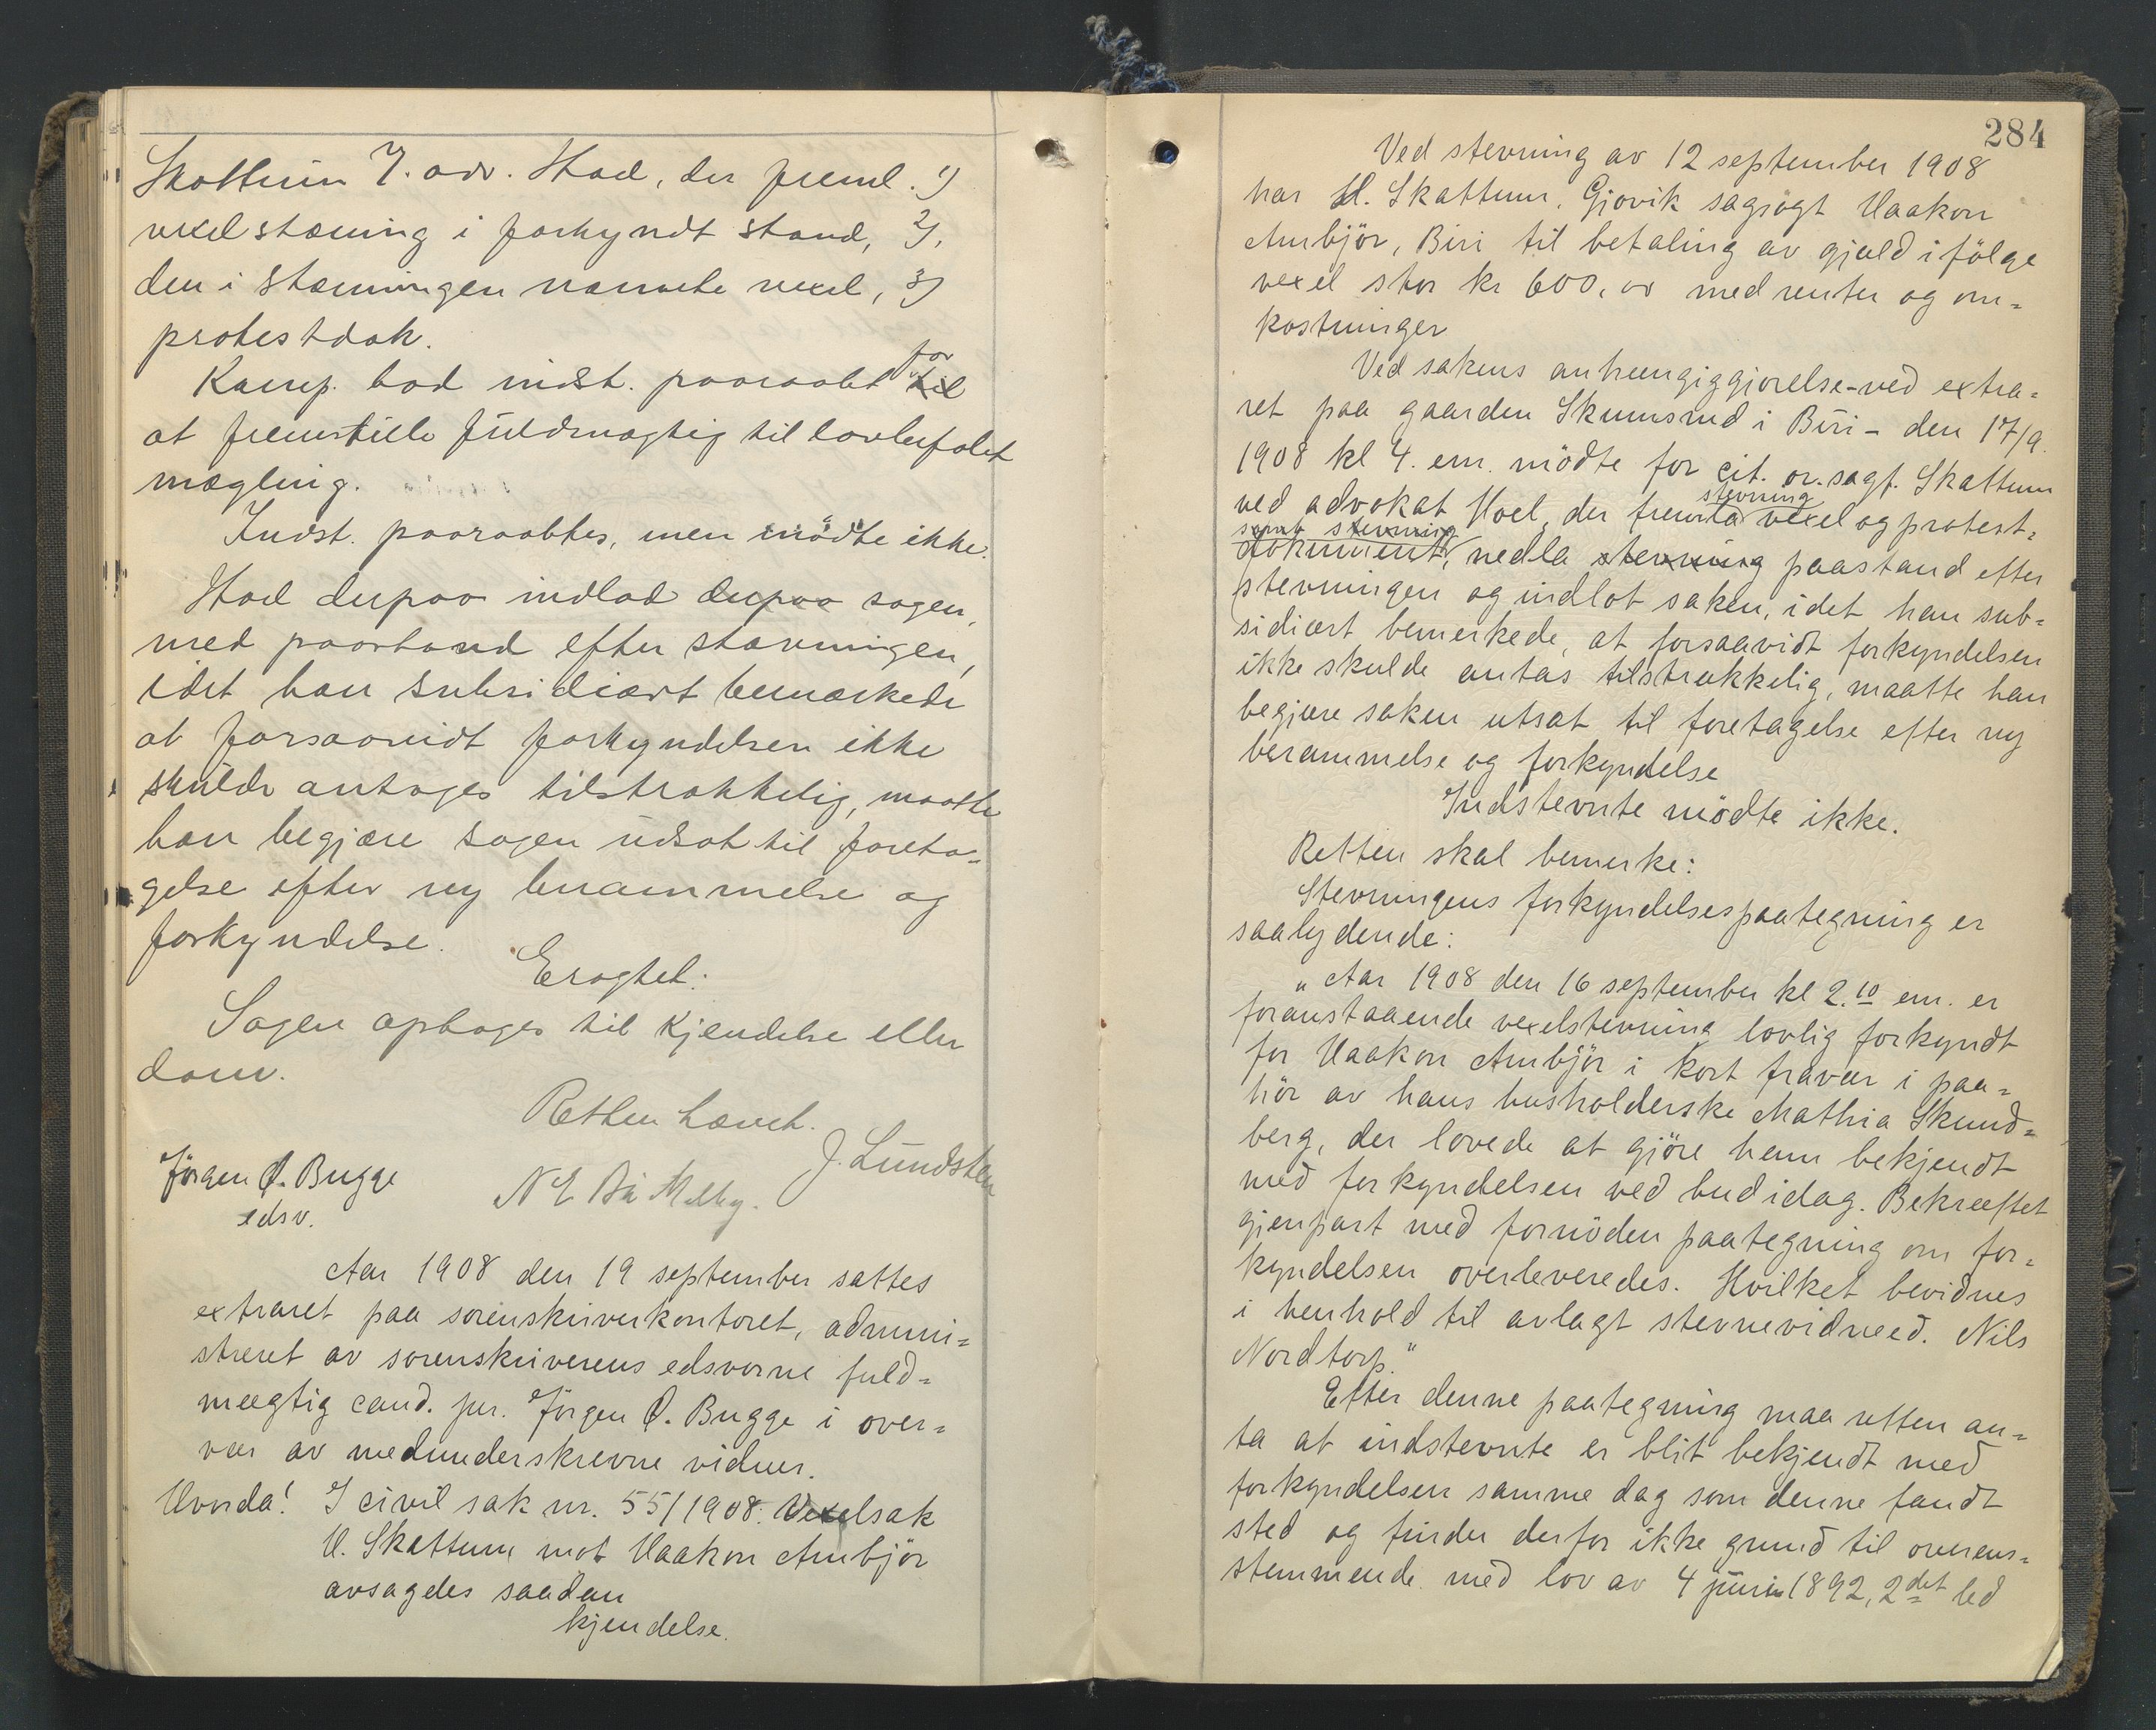 Skattum V. adv. Hoel, der freml. 1)
vexelstævning i forkyndt stand, 2),
den i stævningen nævnte vexel, 3)
protestdok.
Komp. bad indst. paaraabt for til
at fremstille fuldmægtig til lovbefalet
mægling.
Indst. paaraabtes, men mödte ikke.
Hoel derpaa indlod derpaa sagen,
med paastand efter stævningen,
idet han subsidiært bemærkede
at forsaavidt forkyndelsen ikke
skulde antages tilstrækkelig, maatte
han begjære sagen udsat til foreta-
gelse efter ny berammelse og
forkyndelse.
Eragtet:
Sagen optages til kjendelse eller
dom.
Retten hævet.
Jörgen Q. Bugge
edsv.
J. Lundsten
Aar 1908 den 19 september sattes
extraret paa sorenskriverkontoret, admini=
streret av sorenskriverens edsvorne fuld=
mægtig cand. jur. Jörgen Q. Bugge i over=
vær av medunderskrevne vidner.
Hvorda! I civil sak nr. 55/1908: Vexelsak
H. Skattum mot Haakon Ambjör
avsagdes saadan
kjendelse.
284
Ved stevning av 12 september 1908
har H. Skattum, Gjovik sagsøgt Haakon
Ambjör, Biri til betaling av gjæld ifölge
vexel stor kr 600,00 med renter og om=
kostninger
Ved sakens anhængiggjorelse - ved extra=
ret paa gaarden Skumsrud i Biri - den 17/9.
1908 kl 4. em. mödte for cit. or.sagf. Skattum
stevning
ved advokat Hoel, der fremla vexel og protest=
samt stevning
dokument, nedla stevning paastand efter
stevningen og indlot saken, idet han sub=
sidiært bemerkede, at forsaavidt forkyndelsen
ikke skulde antas tilstrækkelig, maatte han
begjære saken utsat til foretagelse efter ny
berammelse og forkyndelse
Indstevnte mödte ikke.
Retten skal bemerke:
Stevningens forkyndelsespaategning er
saalydende:
"Aar 1908 den 16 september kl 2.10 em. er
foranstaaende vexelstevning lovlig forkyndt
for Haakon Ambjör i kort fravær i paa=
hör av hans husholderske Mathia Skund=
berg, der lovede at gjöre ham bekjendt
med forkyndelsen ved bud idag. Bekræftet
gjenpart med fornöden paategning om for=
kyndelsen overleveredes. Hvilket bevidnes
i henhold til avlagt stevnevidneed. Nils
Nordtorp."
Efter denne paategning maa retten an=
ta at indstevnte er blit bekjendt med
forkyndelsen samme dag som denne fandt
sted og finder derfor ikke grund til overens=
stemmende med lov av 4 juni 1892, 2det led